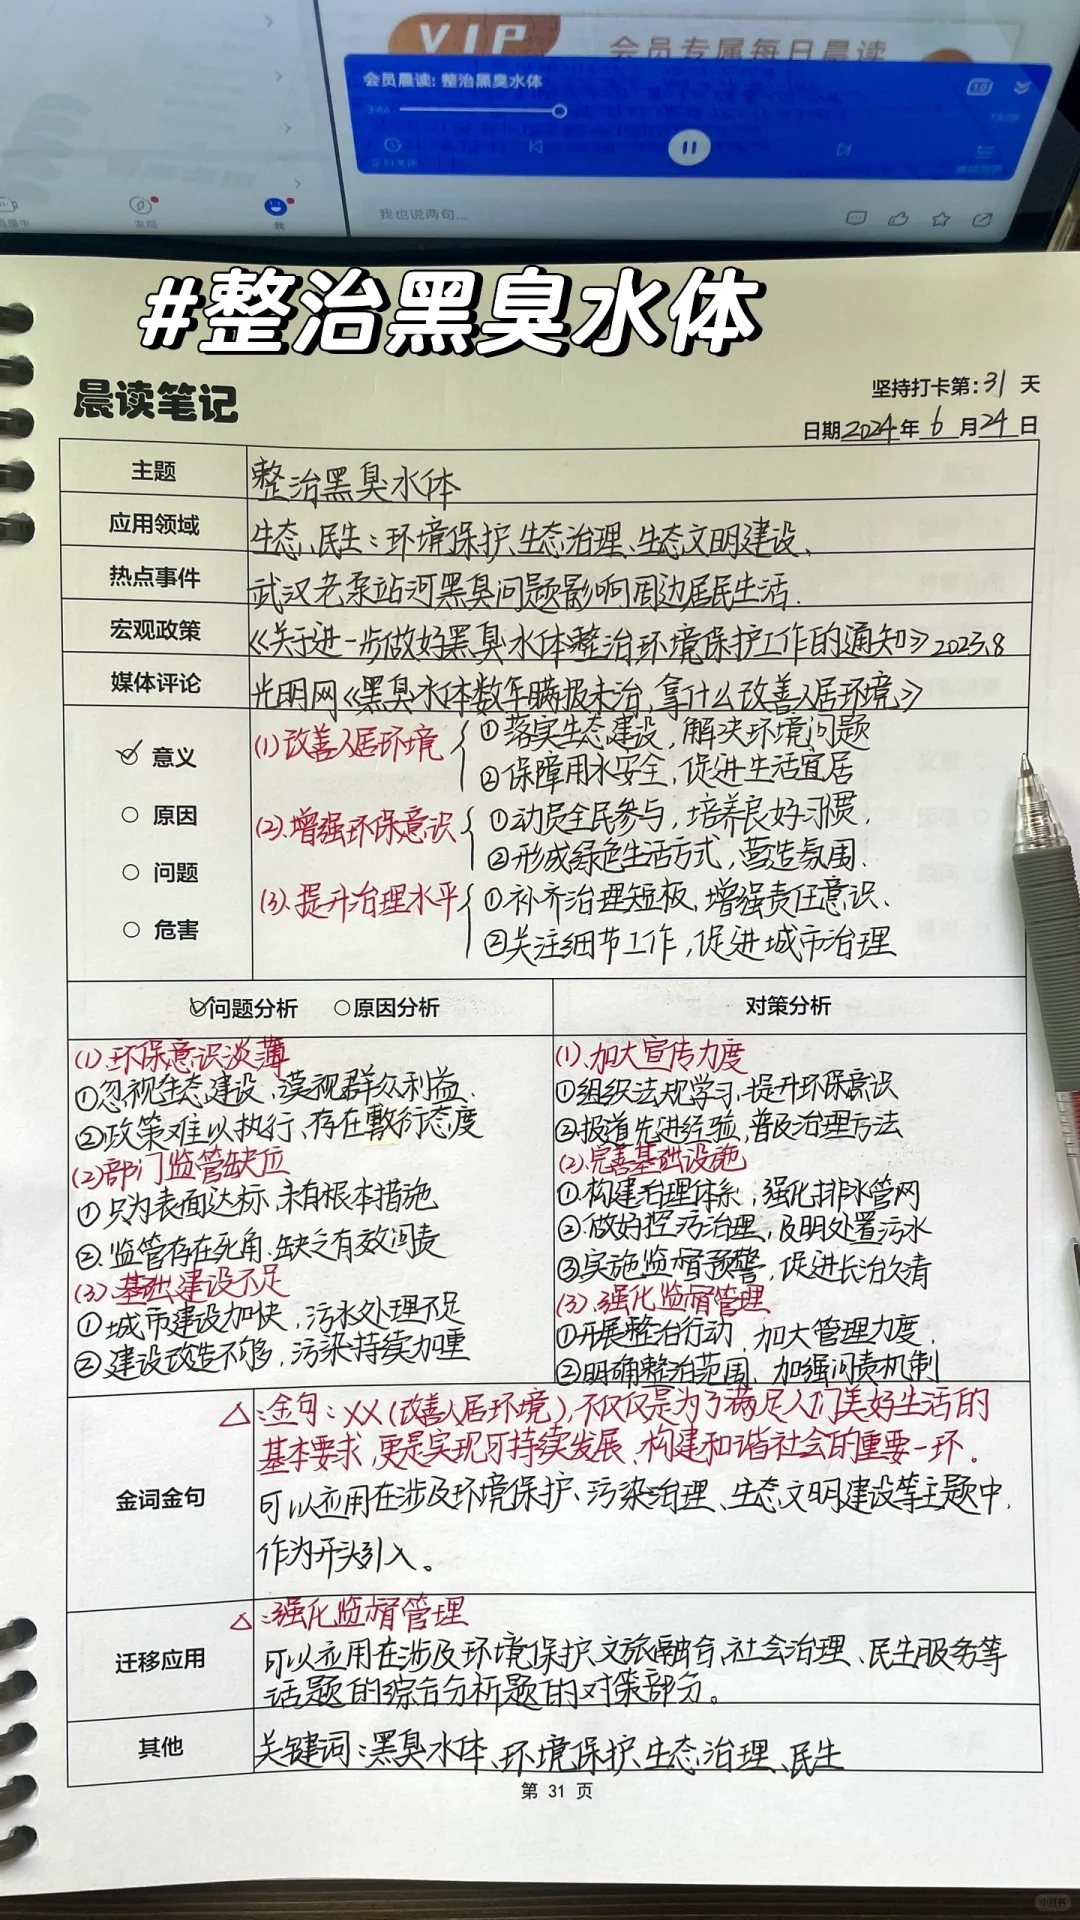 VIP 会员专属每日晨读
会员晨读: 整治黑臭水体
3:46
1.0
定时关闭
我也说两句...
发现
我
#整治黑臭水体
晨读笔记
坚持打卡第:31 天
日期2024年6月24日
主题 整治黑臭水体
应用领域 生态、民生:环境保护、生态治理、生态文明建设、
热点事件 武汉老泵站河黑臭问题影响周边居民生活.
宏观政策 《关于进一步做好黑臭水体整治环境保护工作的通知》2023.8
媒体评论 光明网《黑臭水体数年瞒报未治,拿什么改善人居环境》
意义
原因
问题
危害
(1)改善人居环境
①落实生态建设,解决环境问题
②保障用水安全,促进生活宜居
(2).增强环保意识
①动员全民参与,培养良好习惯.
②形成绿色生活方式,营造氛围.
(3).提升治理水平
①补齐治理短板,增强责任意识.
②关注细节工作,促进城市治理
问题分析 原因分析 对策分析
(1).环保意识淡薄
①忽视生态建设,漠视群众利益.
②政策难以执行,存在敷衍态度
(2)部门监管缺位
①只为表面达标,未有根本措施
②.监管存在死角.缺乏有效问责
(3).基础建设不足
①城市建设加快,污水处理不足
②建设改造不够,污染持续加重
(1).加大宣传力度
①组织法规学习,提升环保意识
②报道先进经验,普及治理方法
(2).完善基础设施
①构建治理体系,强化排水管网
②.做好控污治理,及时处置污水
③实施监督预警,促进长治久清
(3).强化监督管理
①开展整治行动,加大管理力度.
②明确整治范围,加强问责机制
金词金句
△:金句:XX(改善人居环境),不仅仅是为了满足人们美好生活的
基本要求,更是实现可持续发展、构建和谐社会的重要一环。
可以应用在涉及环境保护、污染治理、生态文明建设等主题中,
作为开头引入。
迁移应用
△:强化监督管理
可以应用在涉及环境保护、文旅融合、社会治理、民生服务等
话题的综合分析题的对策部分。
其他 关键词:黑臭水体、环境保护、生态治理、民生
第 31 页
小红书